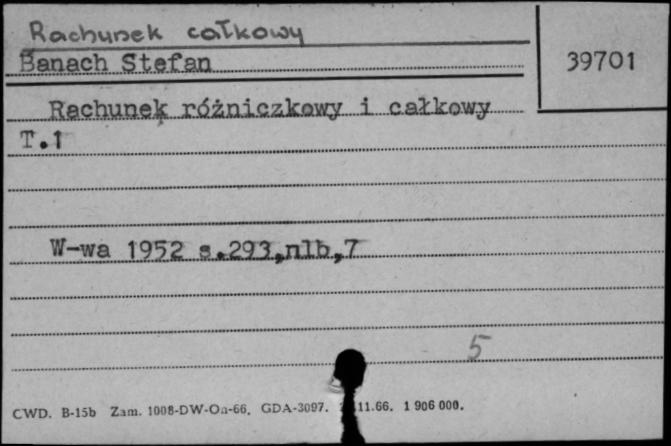 Rachunek całkowy
39701
Banach Stefan
Rachunek różniczkowy i całkowy
T.1
W-wa 1952 s.293,nlb,7
5
CWD. B-15b Zam. 1008-DW-Oa-66. GDA-3097. 11.66. 1 906 000.